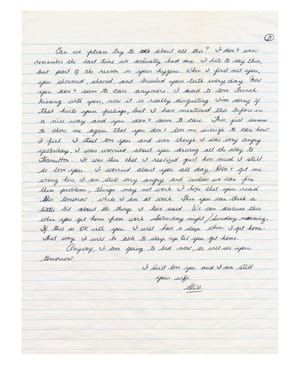 ②
Can we please try to talk about all this? I don't even
remember the last time we actually had sex. I hate to say this,
but part of the reason is your hygiene. When I first met you,
you showered, shaved, and brushed your teeth every day. Now
you don't seem to care anymore. I used to love French
kissing with you, now it is really disgusting. I'm sorry if
that hurts your feelings, but I have mentioned this before in
a nice way and you don't seem to care. This just seems
to show me again that you don't love me enough to care how
I feel. I still love you and even though I was very angry
yesterday, I was worried about you driving all the way to
Hamilton. It was then that I realized just how much I still
do love you. I worried about you all day. Don't get me
wrong tho, I am still very angry and unless we can fix
these problems, things may not work. I hope that you read
this tomorrow while I am at work. Then you can think a
little bit about the things I have said. We can discuss this
when you get home from work Saturday night/Sunday morning.
If this is OK with you I will have a sleep when I get home.
That way I will be able to stay up til you get home.
Anyway, I am going to bed now, so will see you
tomorrow.
I still love you and I am still
your wife.